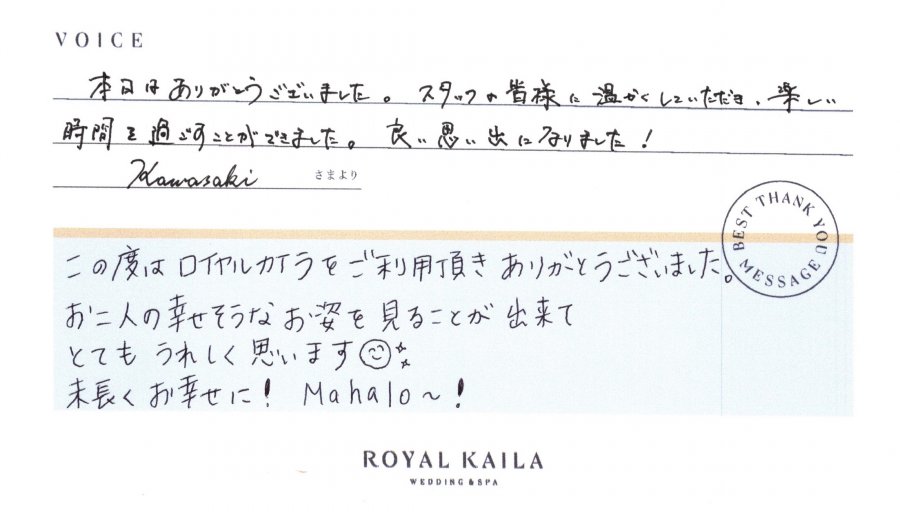 VOICE
本日はありがとうございました。スタッフの皆様に温かくしていただき、楽しい
時間を過ごすことができました。良い思い出になりました！
Kawasaki さまより
BEST THANK YOU MESSAGE
この度はロイヤルカイラをご利用頂きありがとうございました。
お二人の幸せそうなお姿を見ることが出来て
とてもうれしく思います
末長くお幸せに！ Mahalo～！
ROYAL KAILA
WEDDING & SPA